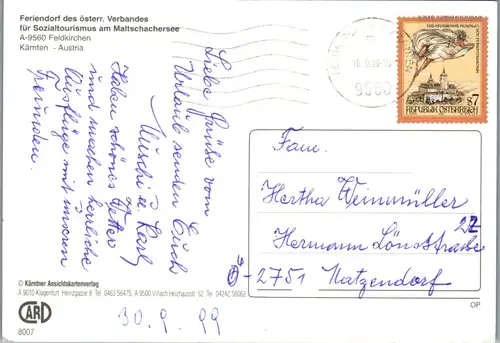 Feriendorf des österr. Verbandes
für Sozialtourismus am Maltschachersee
A-9560 Feldkirchen
Kärnten - Austria
Liebe Grüße vom
Urlaub senden Euch
Muschi u Karl
Haben schönes Wetter
und machen herrliche
Ausflüge mit unseren
Freunden.
© Kärntner Ansichtskartenverlag
A 9010 Klagenfurt, Heinzgasse 6, Tel. 0463 56475, A 9500 Villach
Tel. 04242 56062
CARD
8007
30.9.99
9560
S 7
REPUBLIK ÖSTERREICH
Fam.
Hertha Weinmüller
22
Hermann Lönsstrasse
-2751 Matzendorf
OP